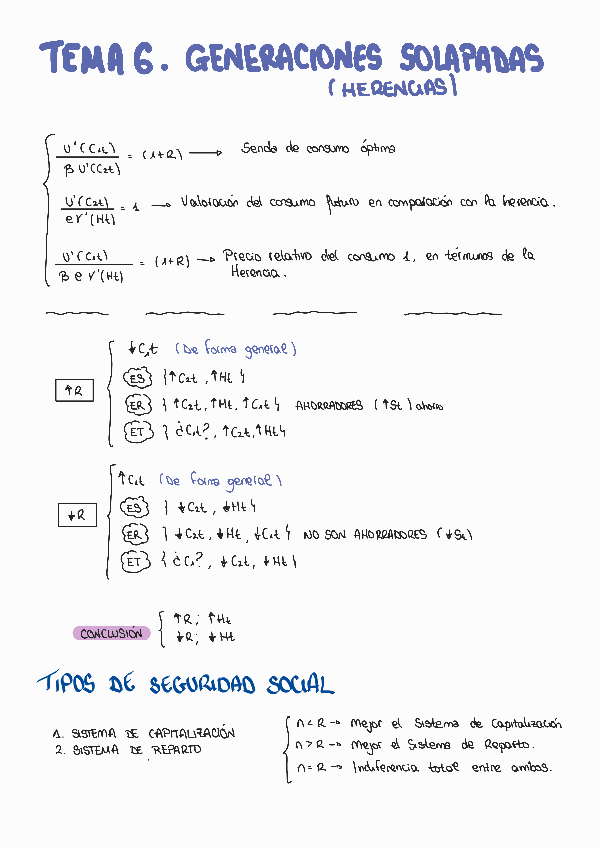 TEMA 6. GENERACIONES SOLAPADAS
(HERENCIAS)
U'(C1t) / β U'(C2t) = (1+R) → Senda de consumo óptima
U'(C2t) / e V'(Ht) = 1 → Valoración del consumo futuro en comparación con la herencia.
U'(C1t) / β e V'(Ht) = (1+R) → Precio relativo del consumo 1, en términos de la
Herencia.
↑R
↓C1t (De forma general)
ES {↑C2t, ↑Ht}
ER {↑C2t, ↑Ht, ↑C1t} AHORRADORES (↑St) ahorro
ET {¿C1t?, ↑C2t, ↑Ht}
↓R
↑C1t (De forma general)
ES {↓C2t, ↓Ht}
ER {↓C2t, ↓Ht, ↓C1t} NO SON AHORRADORES (↓St)
ET {¿C1?, ↓C2t, ↓Ht}
CONCLUSIÓN
↑R; ↑Ht
↓R; ↓Ht
TIPOS DE SEGURIDAD SOCIAL
1. SISTEMA DE CAPITALIZACIÓN
2. SISTEMA DE REPARTO
n < R → Mejor el Sistema de Capitalización
n > R → Mejor el Sistema de Reparto.
n = R → Indiferencia total entre ambos.